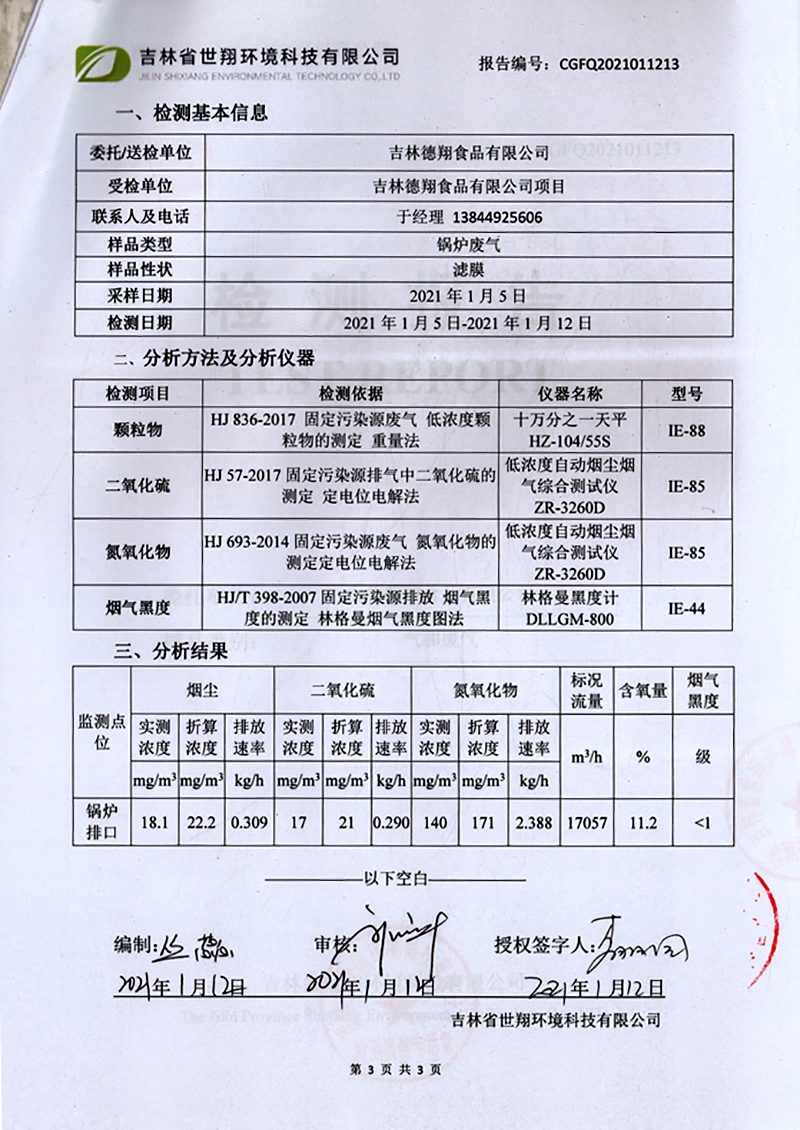 吉林省世翔环境科技有限公司
JILIN SHIXIANG ENVIRONMENTAL TECHNOLOGY CO.,LTD
报告编号：CGFQ2021011213
一、检测基本信息
委托/送检单位 吉林德翔食品有限公司
受检单位 吉林德翔食品有限公司项目
联系人及电话 于经理 13844925606
样品类型 锅炉废气
样品性状 滤膜
采样日期 2021 年 1 月 5 日
检测日期 2021 年 1 月 5 日-2021 年 1 月 12 日
二、分析方法及分析仪器
检测项目 检测依据 仪器名称 型号
颗粒物 HJ 836-2017 固定污染源废气 低浓度颗粒物的测定 重量法 十万分之一天平 HZ-104/55S IE-88
二氧化硫 HJ 57-2017 固定污染源排气中二氧化硫的测定 定电位电解法 低浓度自动烟尘烟气综合测试仪 ZR-3260D IE-85
氮氧化物 HJ 693-2014 固定污染源废气 氮氧化物的测定定电位电解法 低浓度自动烟尘烟气综合测试仪 ZR-3260D IE-85
烟气黑度 HJ/T 398-2007 固定污染源排放 烟气黑度的测定 林格曼烟气黑度图法 林格曼黑度计 DLLGM-800 IE-44
三、分析结果
监测点位 烟尘 二氧化硫 氮氧化物 标况流量 含氧量 烟气黑度
实测浓度 折算浓度 排放速率 实测浓度 折算浓度 排放速率 实测浓度 折算浓度 排放速率 m³/h % 级
mg/m³ mg/m³ kg/h mg/m³ mg/m³ kg/h mg/m³ mg/m³ kg/h
锅炉排口 18.1 22.2 0.309 17 21 0.290 140 171 2.388 17057 11.2 <1
以下空白
编制: 审核: 授权签字人:
2021年1月12日 2021年1月12日 2021年1月12日
吉林省世翔环境科技有限公司
第 3 页 共 3 页